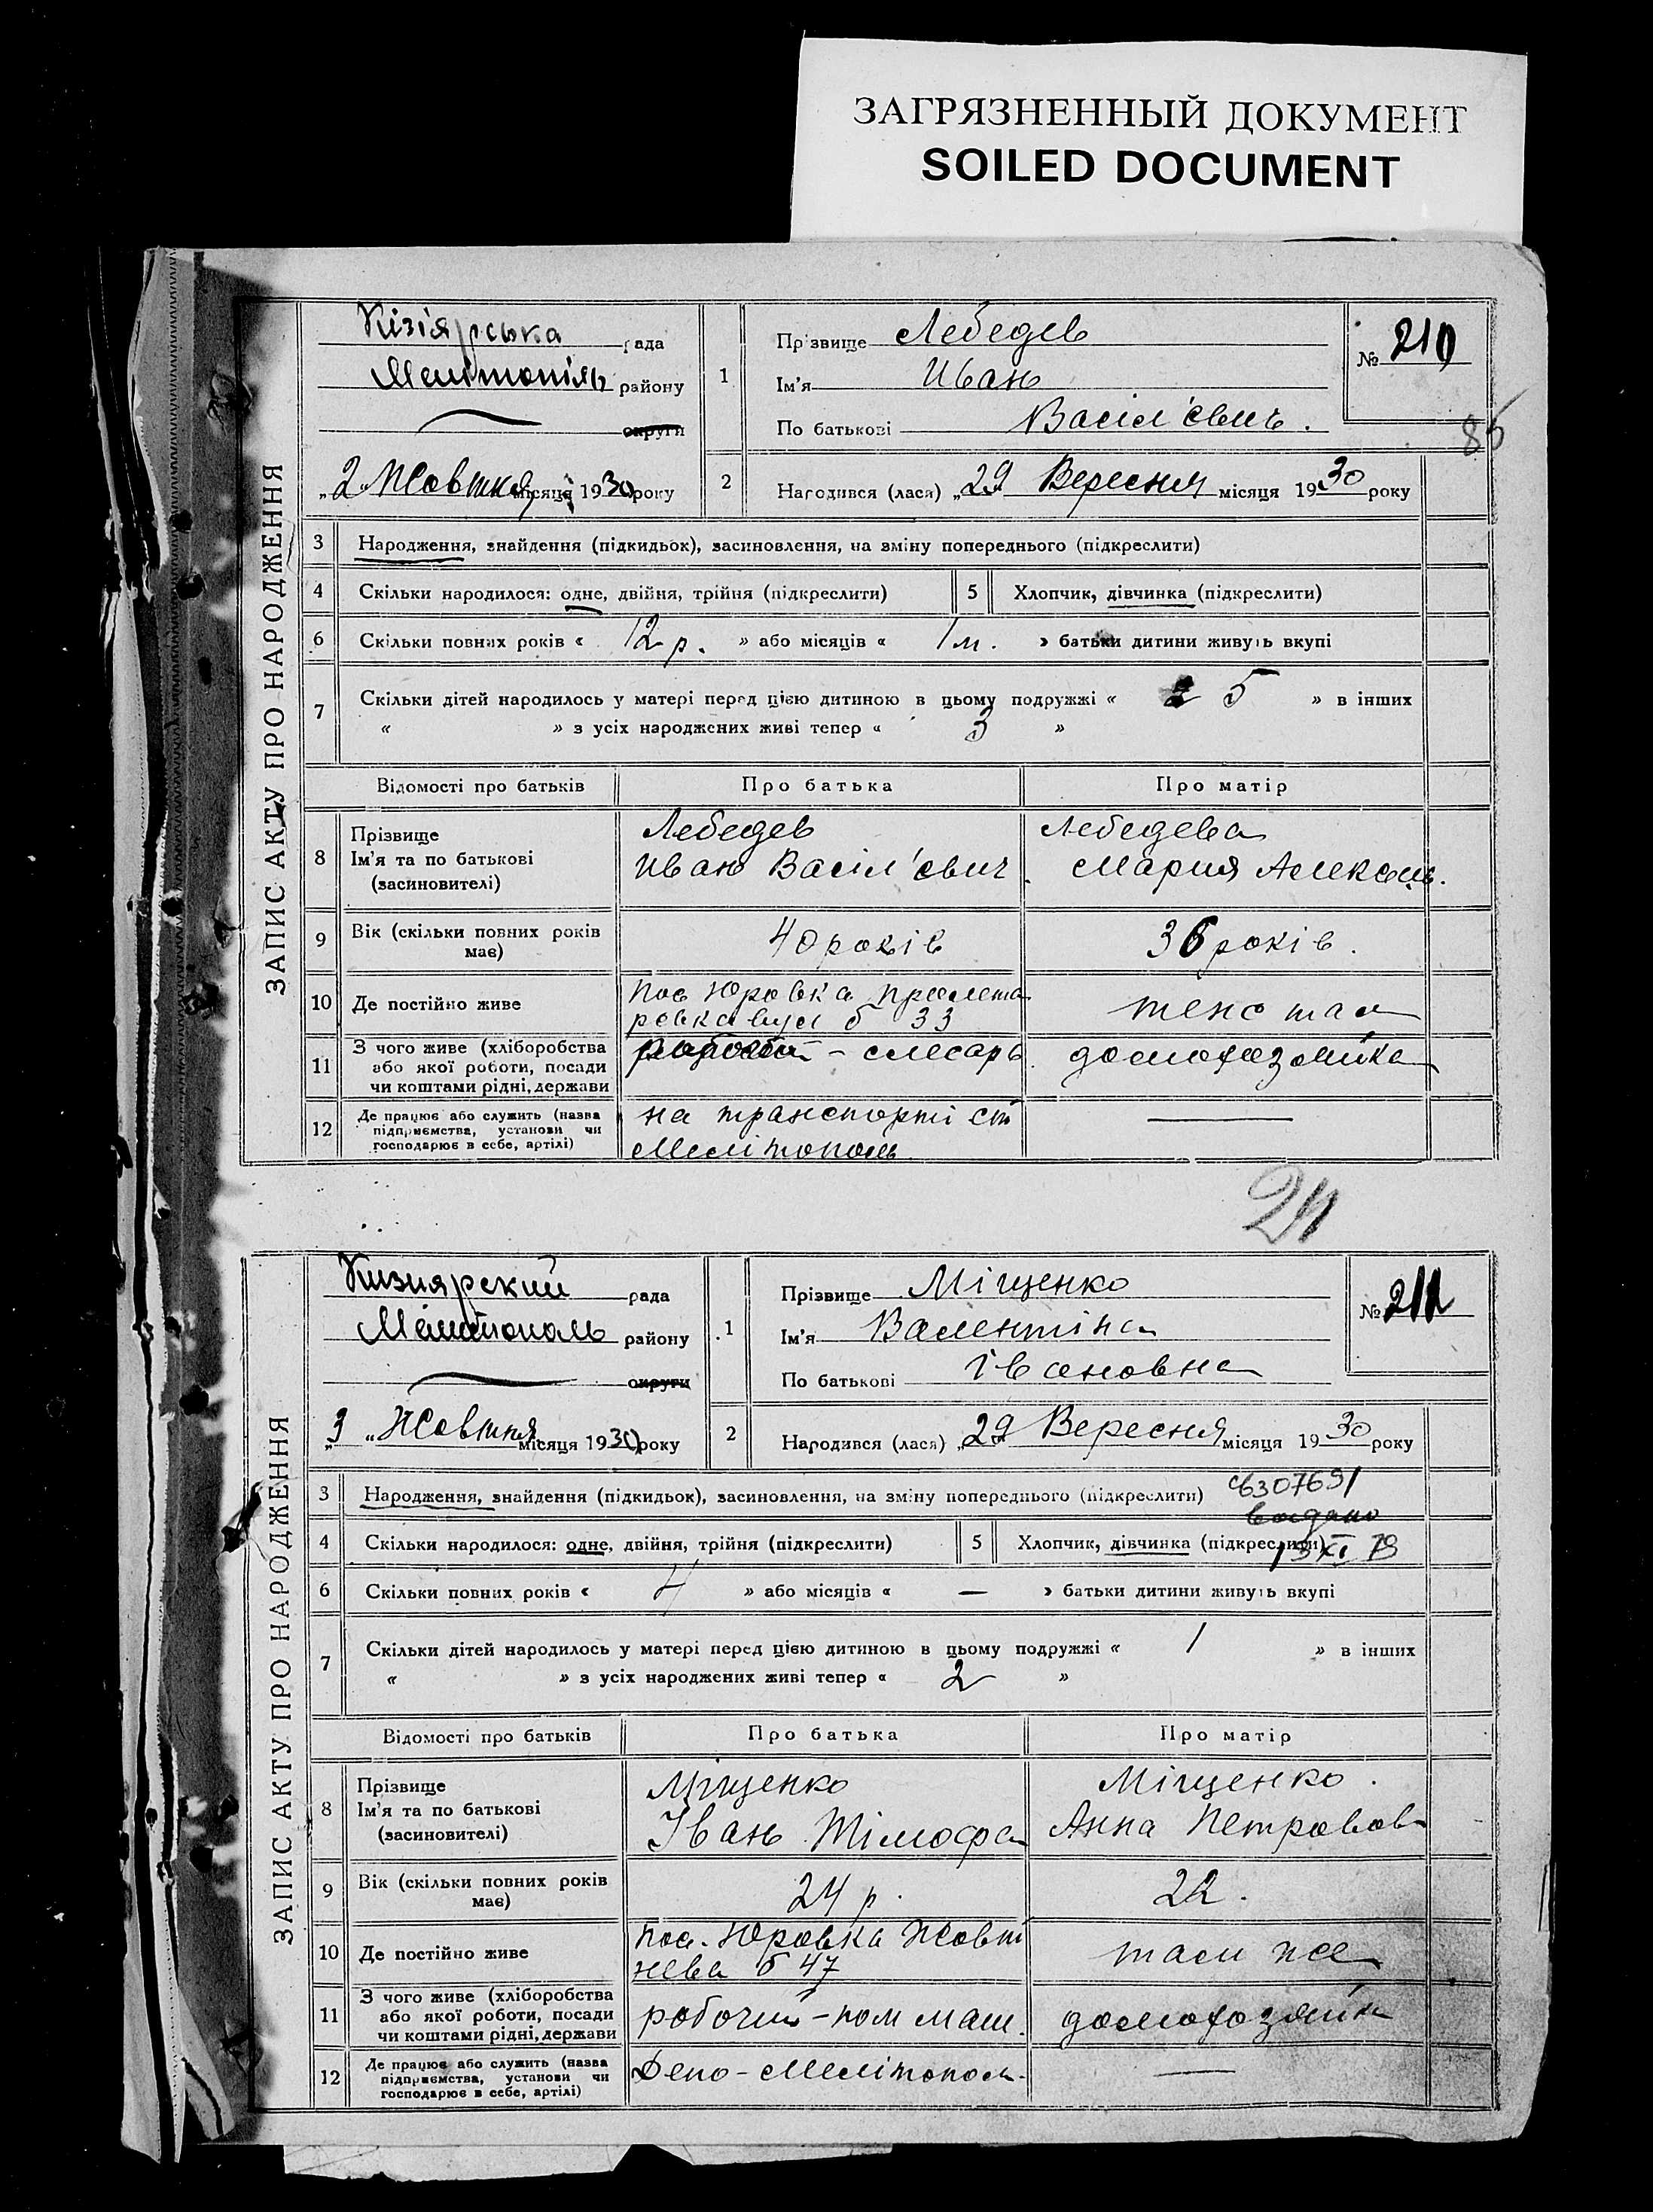 ЗАГРЯЗНЕННЫЙ ДОКУМЕНТ
SOILED DOCUMENT
ЗАПИС АКТУ ПРО НАРОДЖЕННЯ
Кізіярська рада
Мелітопіль району
округи
„2„ Жовтня місяця 1930 року
1
Прізвище Лебедев
Ім'я Иван
По батькові Васіл'євич.
№ 210
85
2
Народився (лася) „29 Вересня місяця 1930 року
3 Народження, знайдення (підкидьок), засиновлення, на зміну попереднього (підкреслити)
4 Скільки народилося: одне, двійня, трійня (підкреслити) 5 Хлопчик, дівчинка (підкреслити)
6 Скільки повних років « 12 р. » або місяців « 1 м. » батьки дитини живуть вкупі
7 Скільки дітей народилось у матері перед цією дитиною в цьому подружжі « 5 » в інших
« » з усіх народжених живі тепер « 3 »
Відомості про батьків Про батька Про матір
8 Прізвище Лебедев Лебедева
Ім'я та по батькові Иван Васіл'євич. Мария
(засиновителі)
9 Вік (скільки повних років має) 40 років 36 років.
10 Де постійно живе Пос Юровка пролета
рська вул б 33
11 З чого живе (хліборобства або якої роботи, посади чи коштами рідні, держави - слесарь домохозяйка
12 Де працює або служить (назва підприємства, установи чи господарює в себе, артілі) на транспорті ст
Мелітополь
ЗАПИС АКТУ ПРО НАРОДЖЕННЯ
Кизиярский рада
Мелитополь району
округи
„3„ Жовтня місяця 1930 року
1
Прізвище Міщенко
Ім'я Валентіна
По батькові Івановна
№ 211
2
Народився (лася) „29 Вересня місяця 1930 року
3 Народження, знайдення (підкидьок), засиновлення, на зміну попереднього (підкреслити)
4 Скільки народилося: одне, двійня, трійня (підкреслити) 5 Хлопчик, дівчинка (підкреслити)
6 Скільки повних років « 4 » або місяців « — » батьки дитини живуть вкупі
7 Скільки дітей народилось у матері перед цією дитиною в цьому подружжі « 1 » в інших
« » з усіх народжених живі тепер « 2 »
Відомості про батьків Про батька Про матір
8 Прізвище Міщенко Міщенко.
Ім'я та по батькові Іван Тімофа Анна Петровов
(засиновителі)
9 Вік (скільки повних років має) 24 р. 22.
10 Де постійно живе пос. Юровка Жовт
нева б 47 там же
11 З чого живе (хліборобства або якої роботи, посади чи коштами рідні, держави робочий - пом маш. домохозяйк
12 Де працює або служить (назва підприємства, установи чи господарює в себе, артілі) Депо - Мелітопол. —